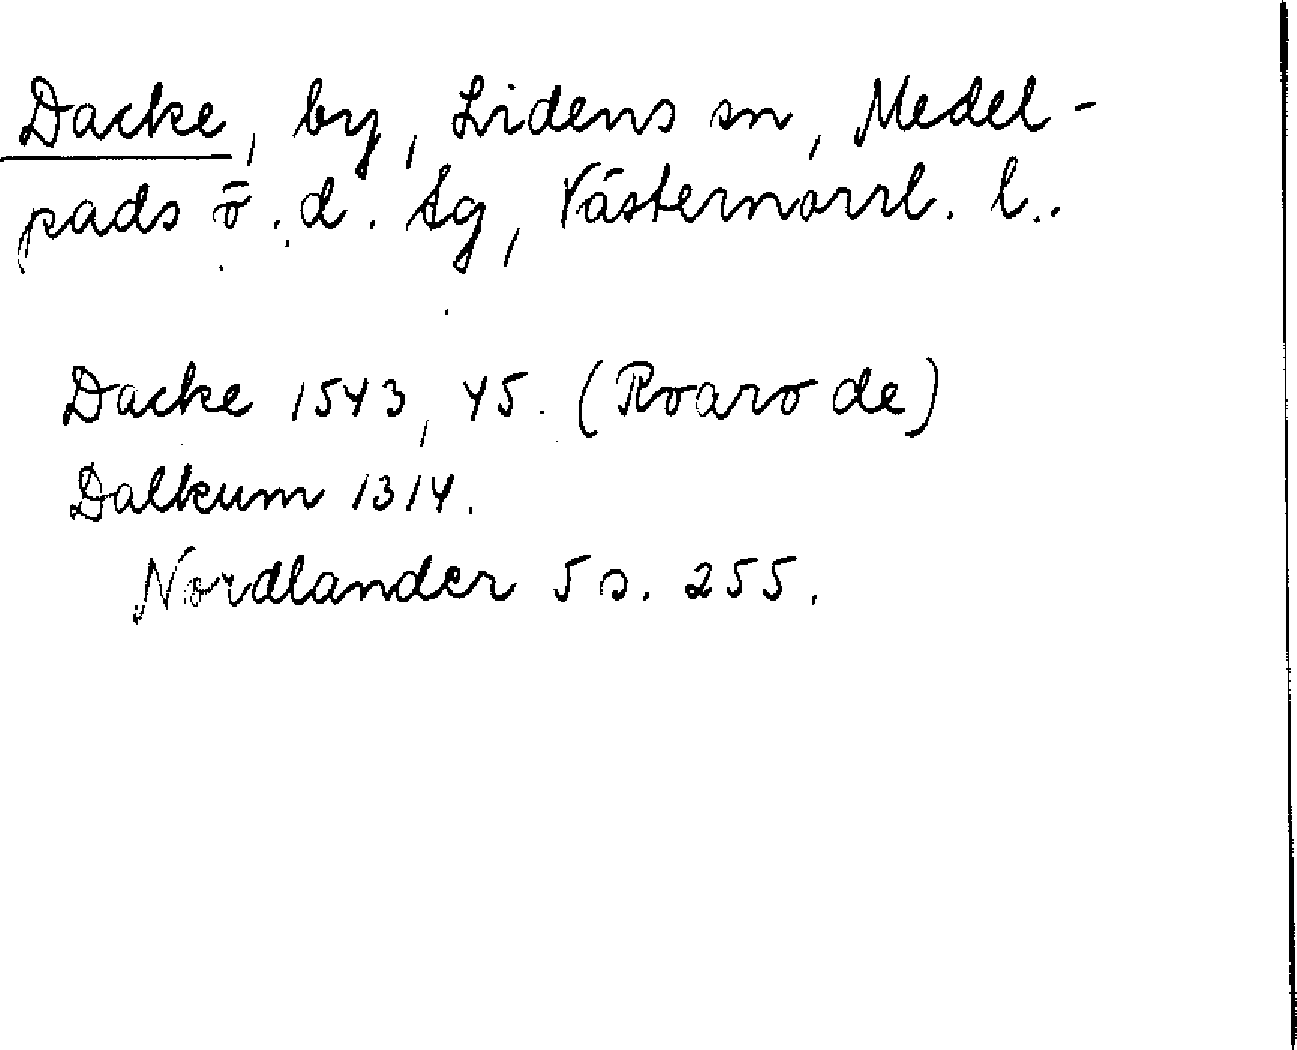 Dacke, by, Lidens sn, Medel-
pads ö. d. tg, Västernorrl. l.
Dacke 1543, 45. (Roarode)
Dalkum 1314.
Nordlander 5 s. 255.